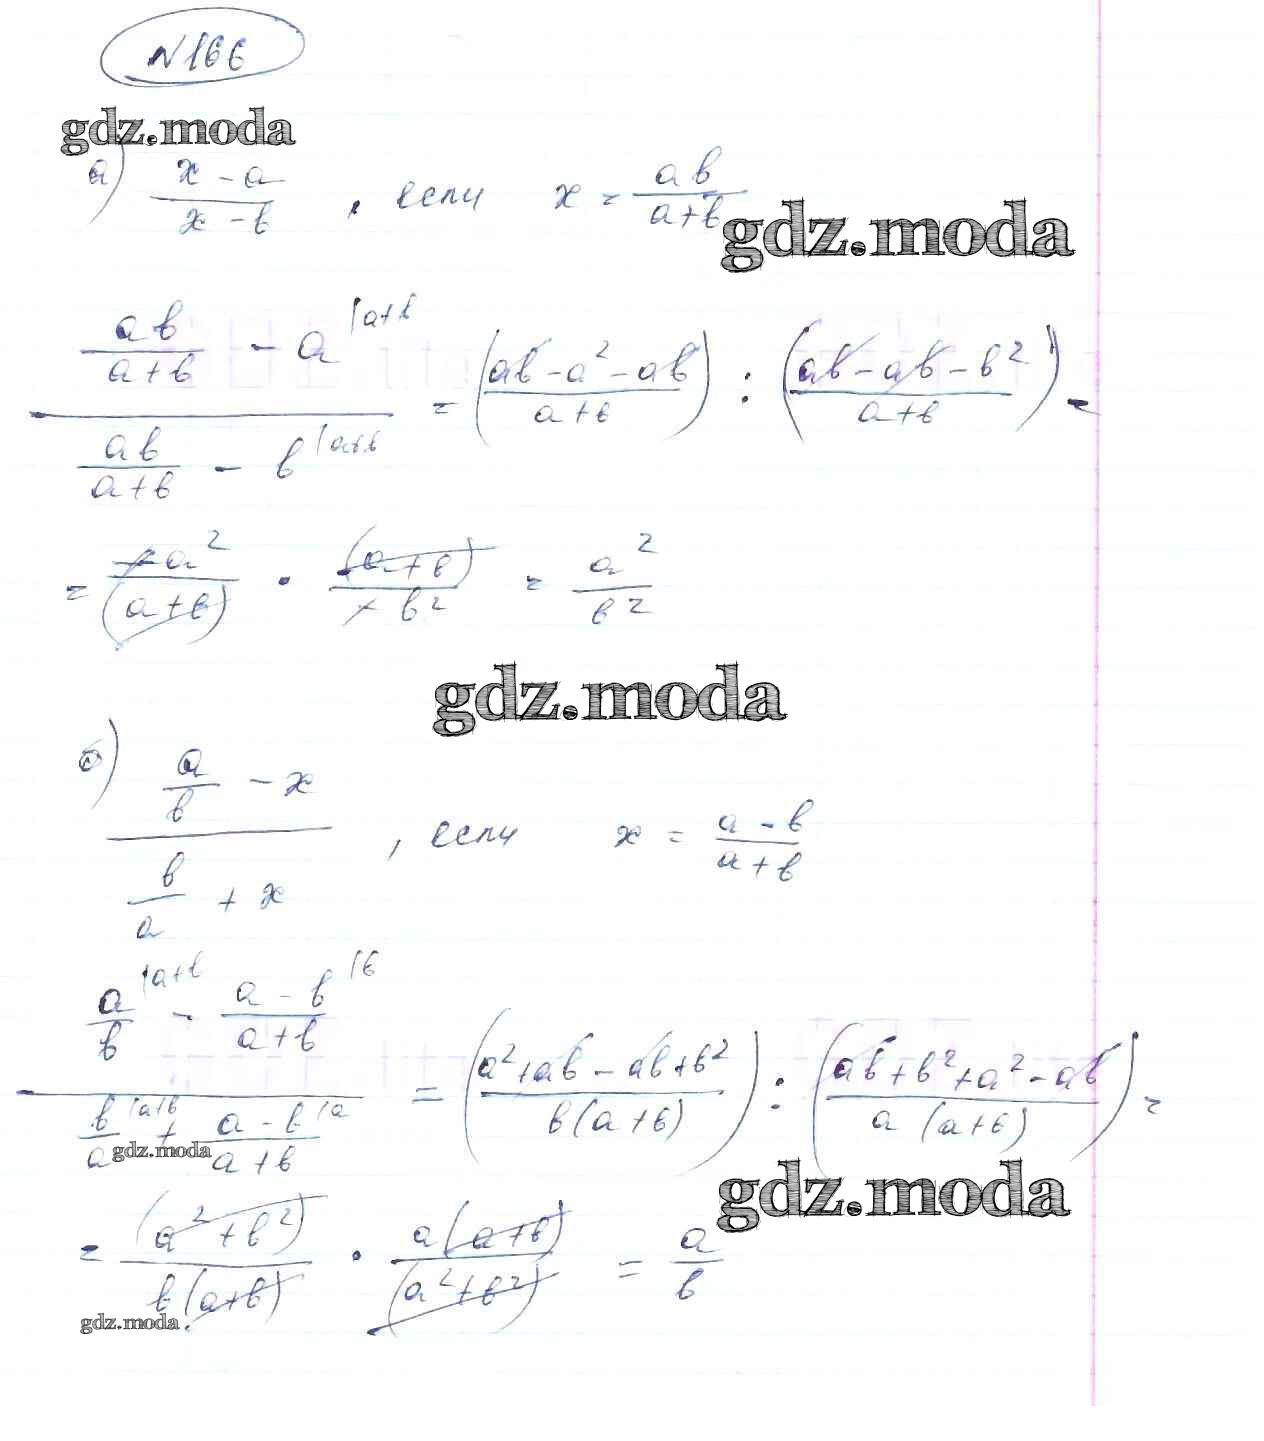 №166
gdz.moda
а) (x - a)/(x - b), если x = ab/(a+b)
gdz.moda
(ab/(a+b) - a |a+b)/(ab/(a+b) - b |a+b) = ((ab - a² - ab)/(a+b)) : ((ab - ab - b²)/(a+b)) =
= -a²/(a+b) · (a+b)/-b² = a²/b²
gdz.moda
б) (a/b - x)/(b/a + x), если x = (a - b)/(a+b)
(a/b |a+b - (a - b)/(a+b) |b)/(b/a |a+b + (a - b)/(a+b) |a) = ((a²+ab - ab+b²)/(b(a+b))) : ((ab+b²+a²-ab)/(a(a+b))) =
gdz.moda
gdz.moda
= (a²+b²)/(b(a+b)) · a(a+b)/(a²+b²) = a/b
gdz.moda